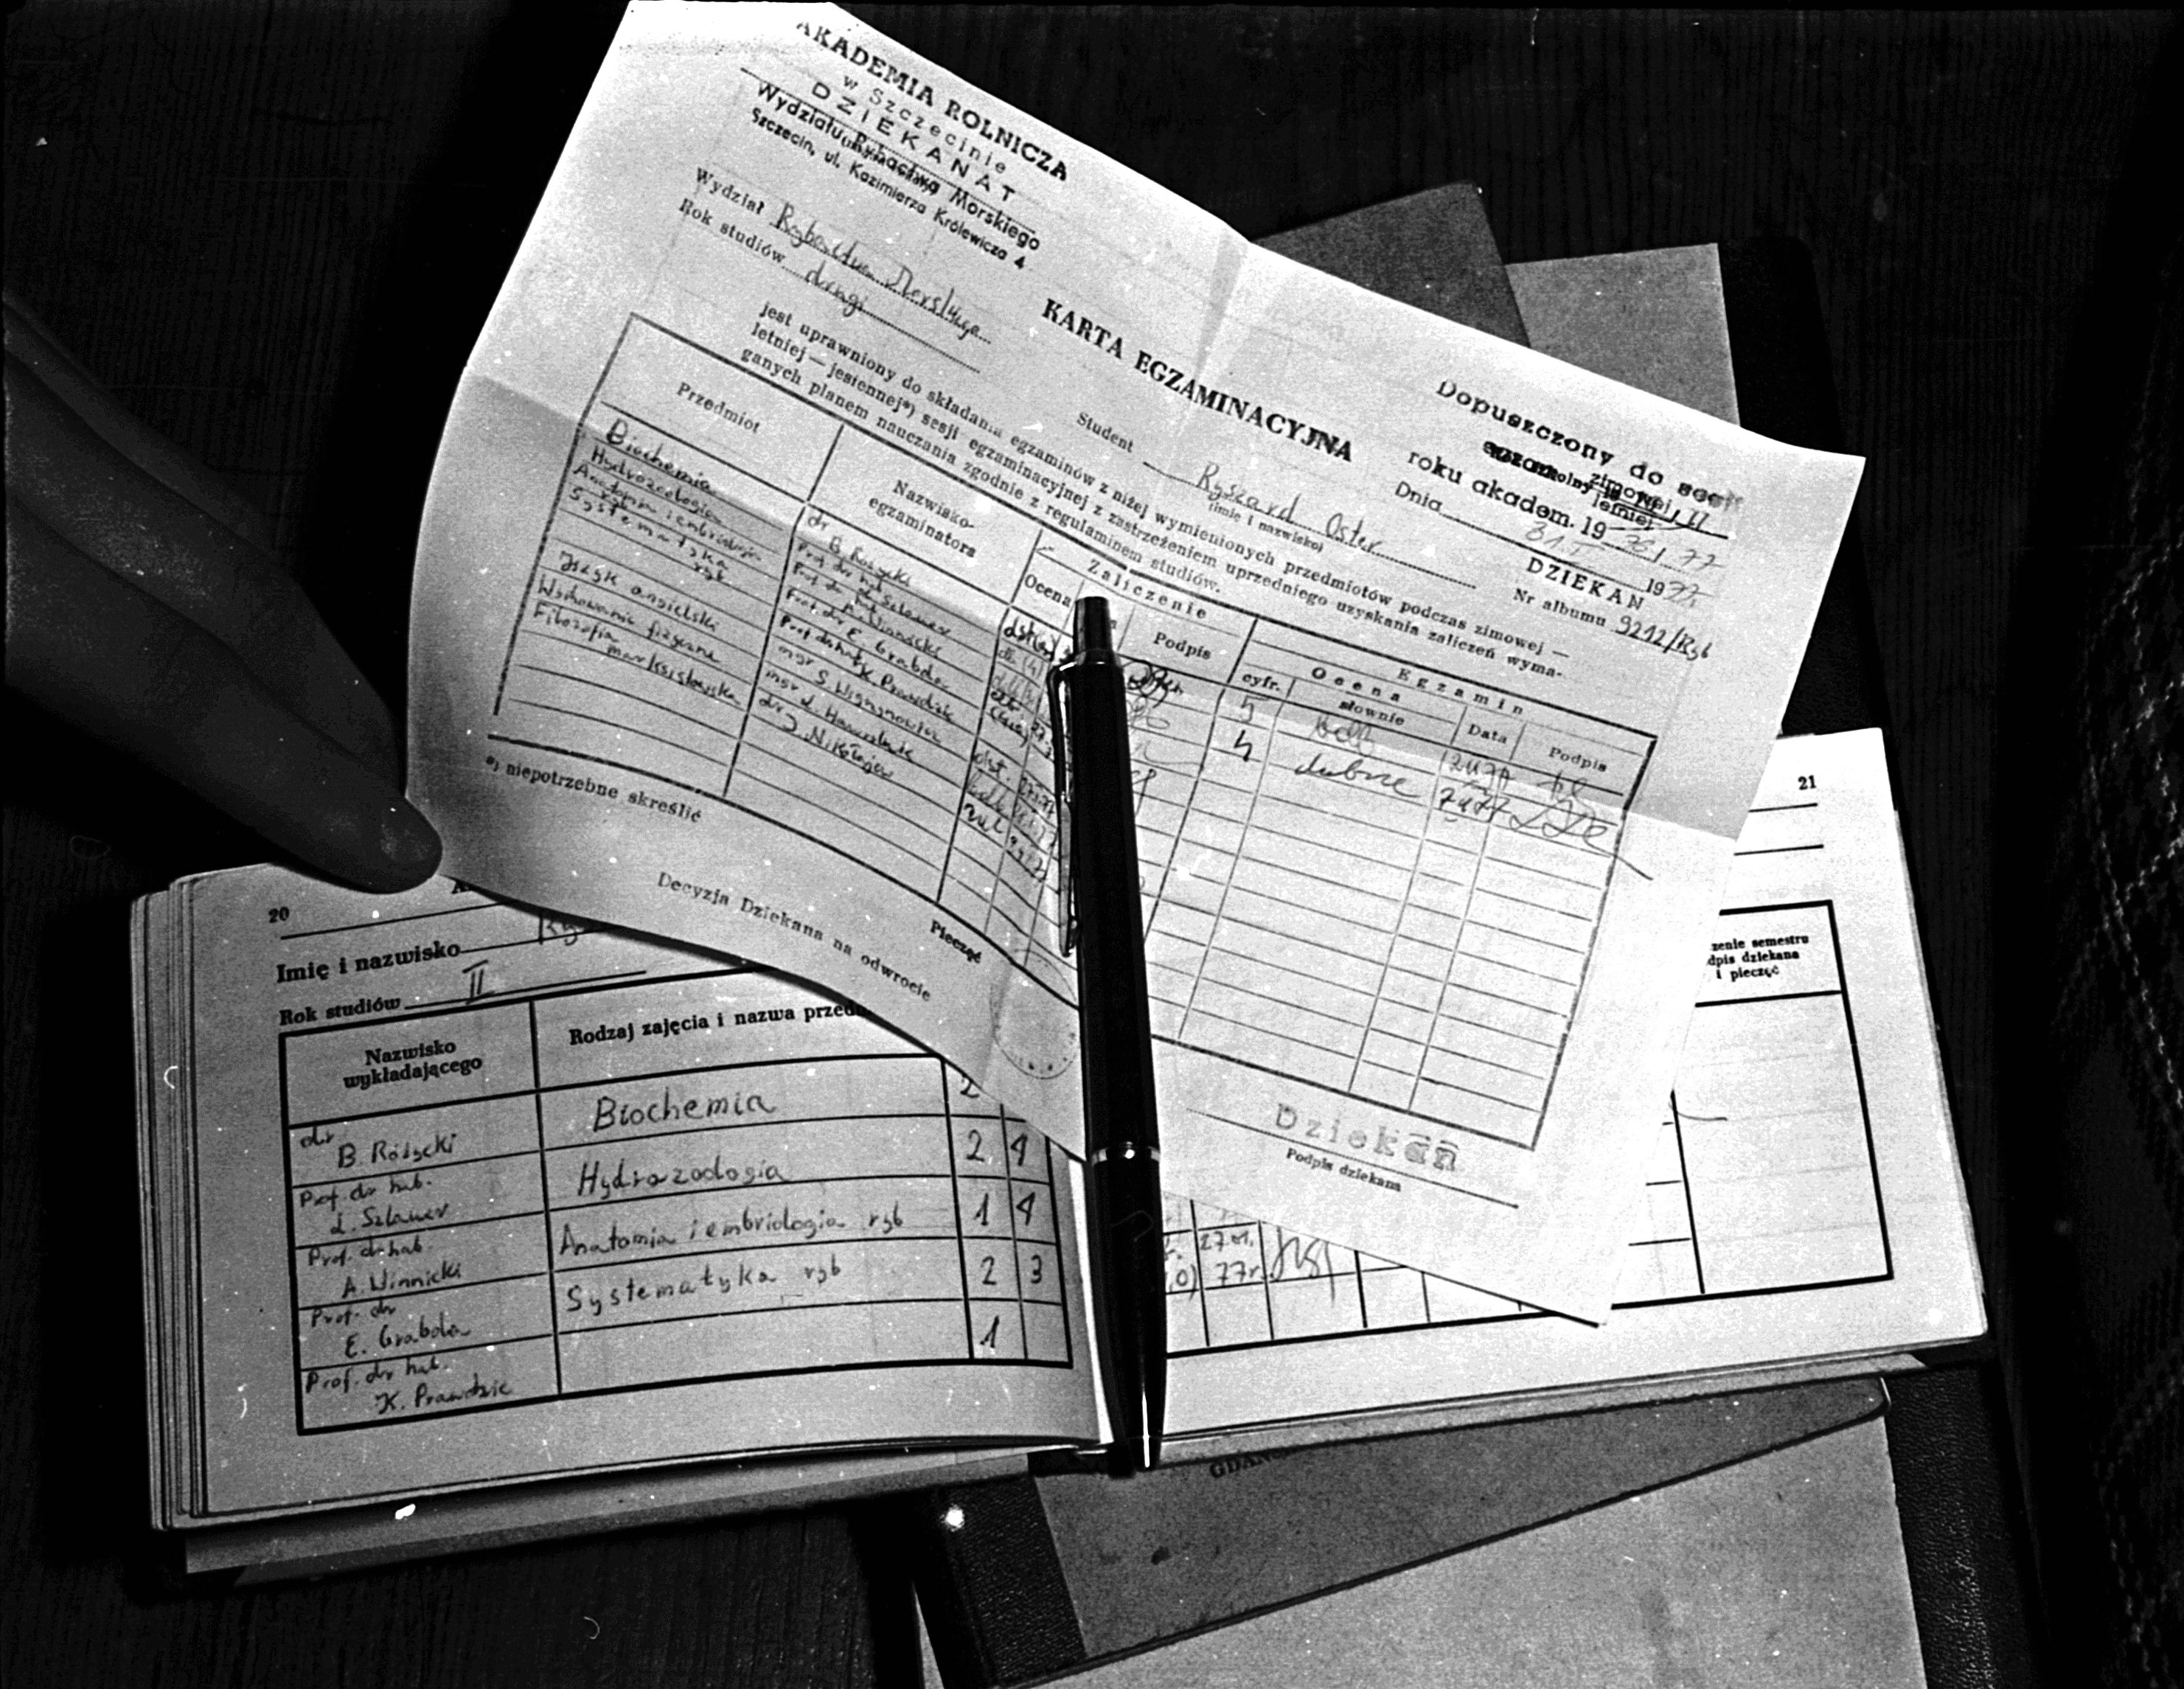 AKADEMIA ROLNICZA
w Szczecinie
DZIEKANAT
Wydziału Rybactwa Morskiego
Szczecin, ul. Kazimierza Królewicza 4
Wydział Rybactwa Morskiego
Rok studiów drugi
KARTA EGZAMINACYJNA
Dopuszczony do
zimowej
letniej
roku akadem. 19 76/77
Dnia 31 I 1977
DZIEKAN
Student Ryszard Oster
(imię i nazwisko)
Nr albumu 9212/Ryb
jest uprawniony do składania egzaminów z niżej wymienionych przedmiotów podczas zimowej —
letniej — jesiennej*) sesji egzaminacyjnej z zastrzeżeniem uprzedniego uzyskania zaliczeń wyma-
ganych planem nauczania zgodnie z regulaminem studiów.
Przedmiot
Nazwisko egzaminatora
Zaliczenie
Ocena
Podpis
Egzamin
Ocena
cyfr.
słownie
Data
Podpis
Biochemia dr B. Różycki
Hydrozoologia Prof. dr hab. Szlauer
Anatomia i embriologia ryb Prof. dr hab. A. Winnicki
Systematyka ryb Prof. dr E. Grabda
Prof. dr hab. K. Prawdzic
Język angielski mgr S. Wyszynowicz
Wychowanie fizyczne mgr
Filozofia marksistowska dr J. Nikołajew
5
4 dobrze
*) niepotrzebne skreślić
Decyzja Dziekana na odwrocie
Pieczęć
Dziekan
Podpis dziekana
20
Imię i nazwisko
Rok studiów II
Nazwisko
wykładającego
Rodzaj zajęcia i nazwa
dr
B. Różycki
Biochemia
2
Prof. dr hab.
L. Szlauer
Hydrozoologia
2 4
Prof. dr hab.
A. Winnicki
Anatomia i embriologia ryb
1 4
Prof. dr
E. Grabda
Systematyka ryb
2 3
Prof. dr hab.
K. Prawdzic
1
21
semestru
dziekana
i pieczęć
27.01.
77r.